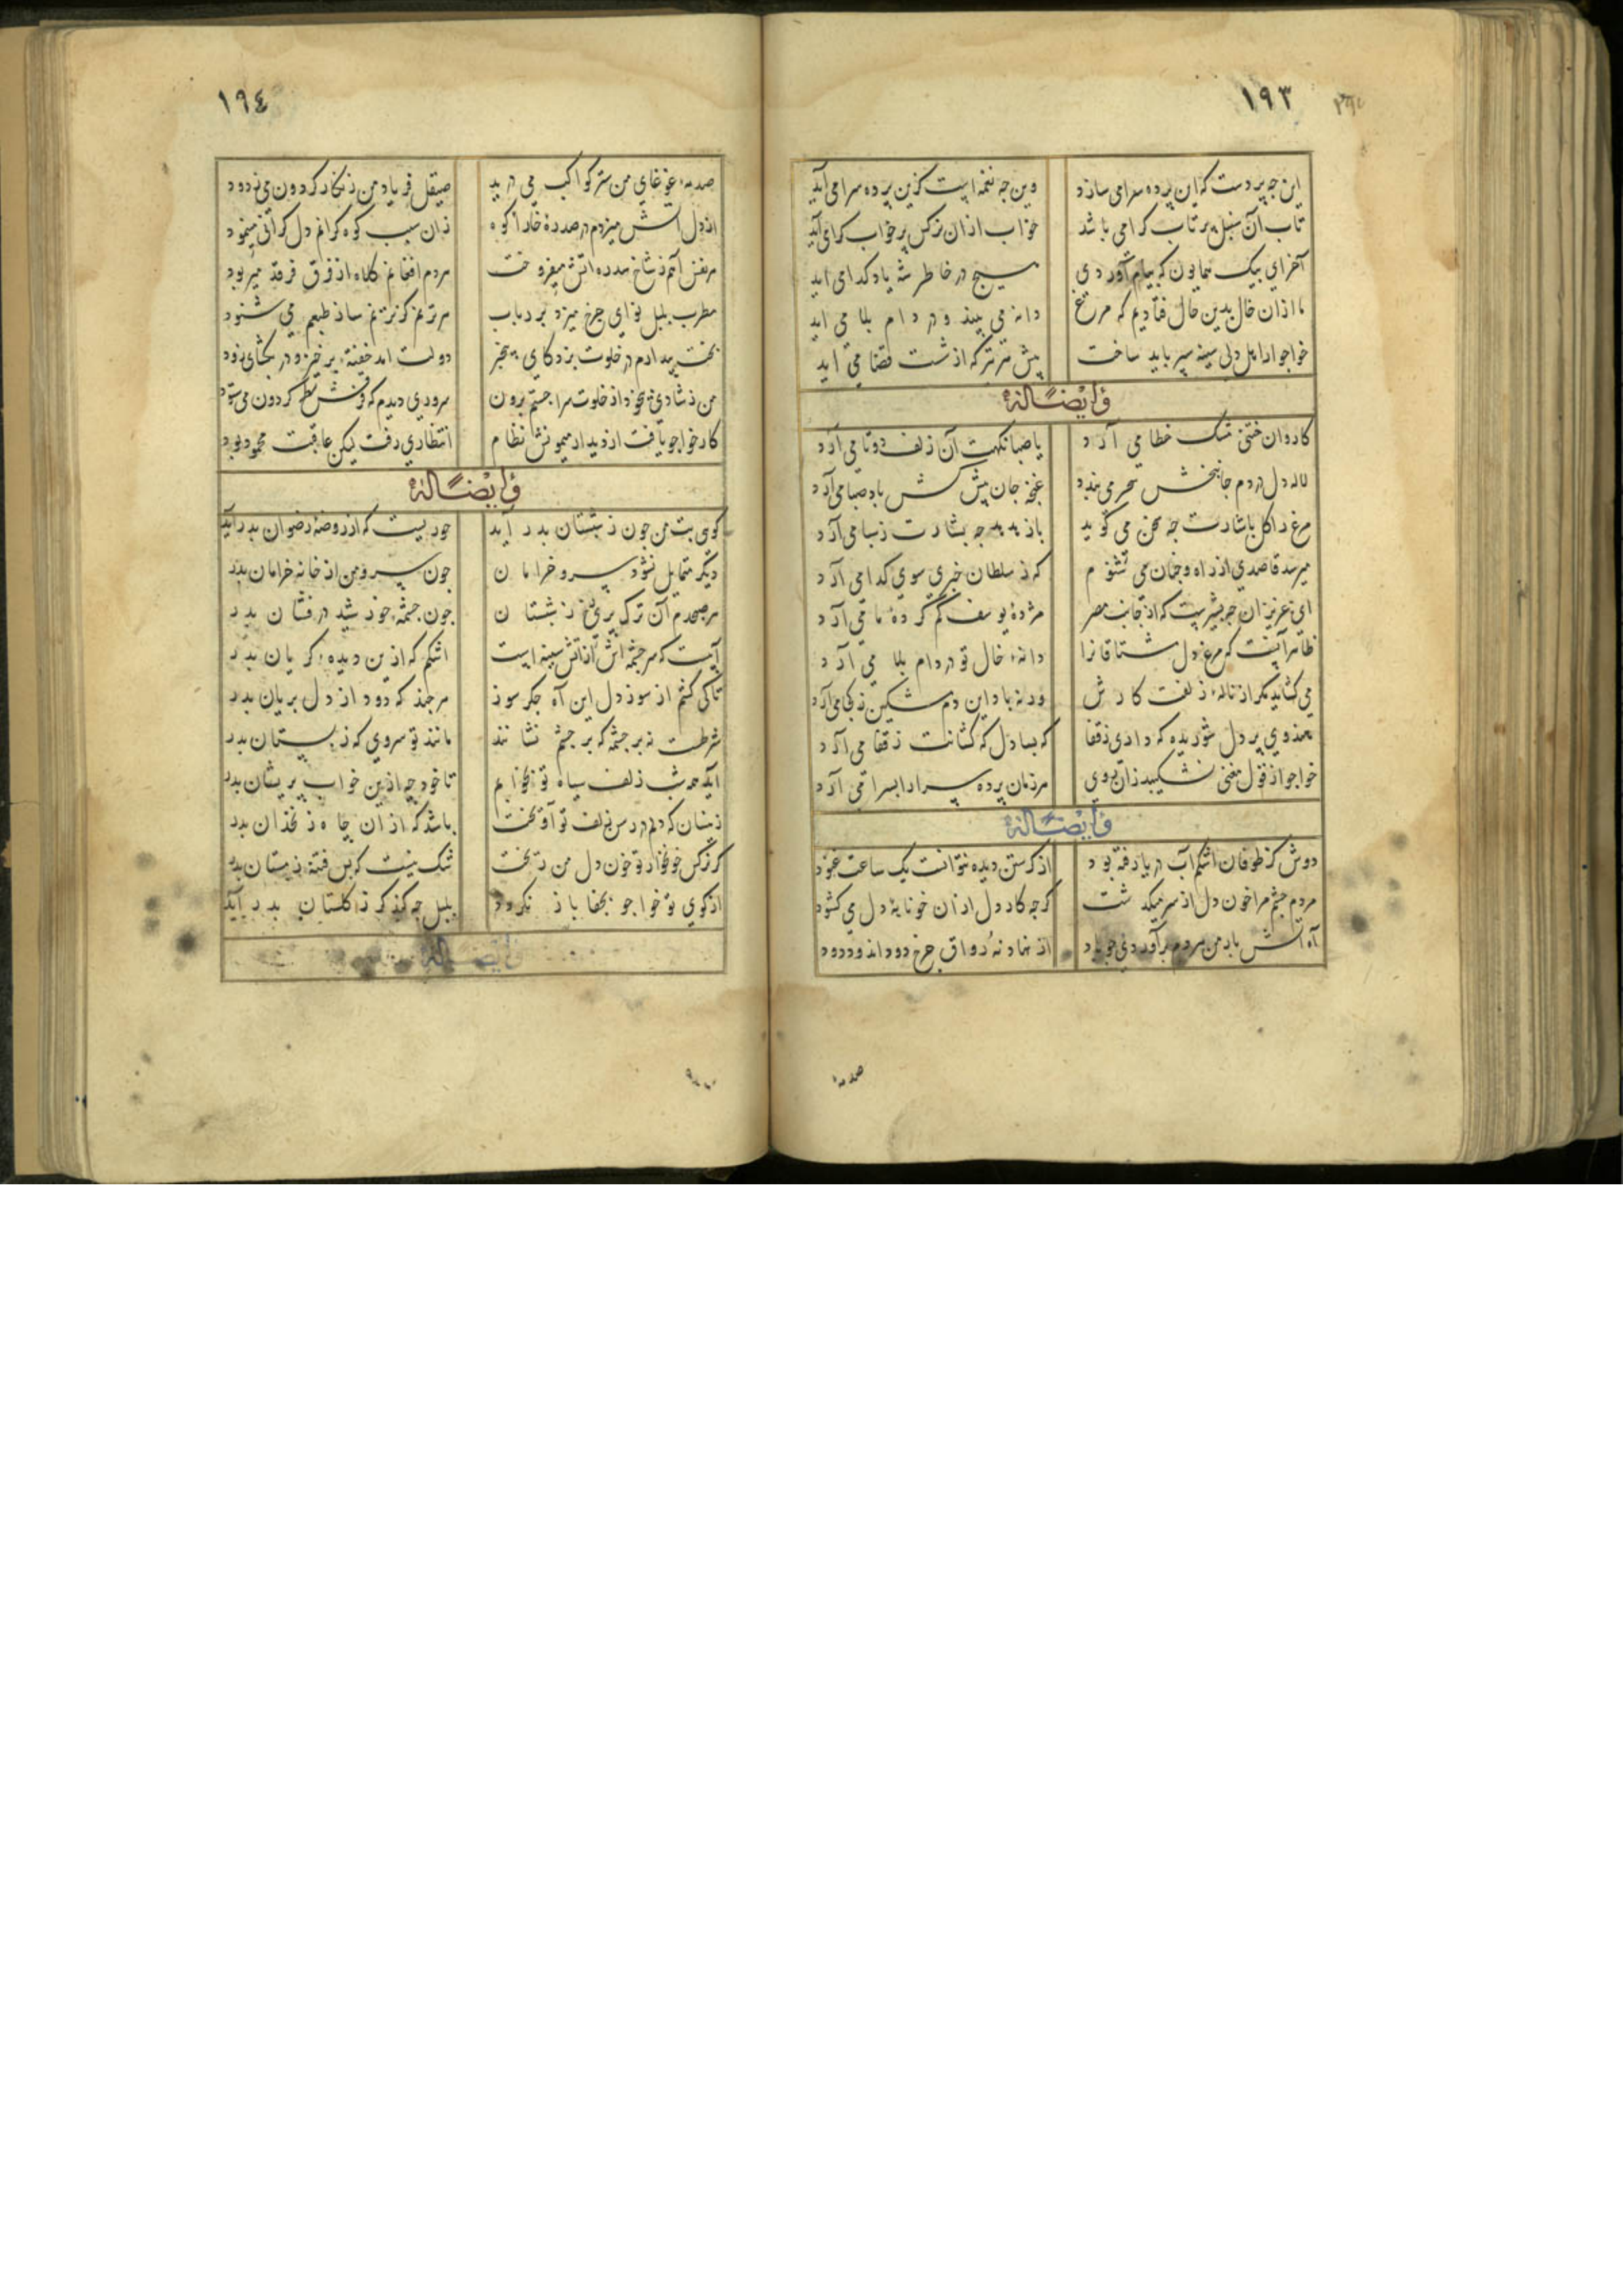 ١٩٣
این چه پردست که این پرده سرا می سازد وین چه نغمه ایست کزین پرده سرا می آید
تاب آن سنبل پر تاب کرا می باشد خواب ازان نرکس پر خواب کرا می آید
آخر ای پیک همایون که پیام آوردی هیچ در خاطر شه یاد کدا می اید
ما ازان خال بدین حال فتادیم که مرغ دانه می بیند و در دام بلا می اید
خواجو ار اهل دلی سینه سپر باید ساخت پیش هر تیر که از شست قضا می اید
وأیضًا له
کاروان ختنی مشک خطا می آرد یا صبا نکهت آن زلف دوتا می آرد
لاله دل در دم جانبخش سحر می بندد غنچه جان پیش کش باد صبا می آرد
مرغ را کل باشارت چه سخن می کوید باز هدهد چه بشارت ز سبا می آرد
میرسد قاصدی از راه و چنان می شنوم که ز سلطان خبری سوی کدا می آرد
ای عزیزان چه بشیریست که از جانب مصر مژدهٔ یوسف کم کرده ما می آرد
ظاهر آنست که مرغ دل مشتاقانرا دانهٔ خال تو در دام بلا می آرد
می کشاید مکر از نافهٔ زلفت کارش ورنه باد این دم مشکین ز کجا می آرد
هندوی پر دل شوریده که داری ز قفا که بسا دل که کشانت ز قفا می آرد
خواجو از قول مغنی نشکیبد زان روی هر زمان پرده سرا را بسرا می آرد
وأیضًا له
دوش کز طوفان اشکم آب دریا رفته بود از کرستن دیده نتوانست یک ساعت غنود
مردم چشم مرا خون دل از سر میکذشت کرچه کار دل ازان خونابهٔ دل می کشود
آه آتش بار من هر دم برآوردی چو باد از نهاد نه رواق چرخ دود اندود دود
صدمهٔ
١٩٤
صدمهٔ غوغای من ستر کواکب می درید صیقل فریاد من زنکار کردون می زدود
از دل آتش میزدم در صدرهٔ خارا کوه زان سبب کوه کرانم دل کرانی مینمود
هر نفس آهم ز شاخ سدره اتش میفروخت هر دم افغانم کلاه از فرق فرقد میربود
مطرب بلبل نوای چرخ میزد بر رباب هر ترنم کز ترنم ساز طبعم می شنود
بخت بیدارم در خلوت بزد کای بیخبر دولت امد خفتهٔ برخیز و در بکشای زود
من ز شادی بیخود از خلوت سرا جستم برون سروری دیدم که فرش سطح کردون می بسود
کار خواجو یافت از دیدار میمونش نظام انتظاری رفت لیکن عاقبت محمود بود
وأیضًا له
کوی بت من چون ز شبستان بدر آید حوریست که از روضهٔ رضوان بدر آید
دیکر متمایل نشود سرو خرامان چون سرو من از خانه خرامان بدر
هر صبحدم آن ترک پری رخ ز شبستان چون چشمهٔ خورشید درفشان بدر
آبیست که سرچشمه اش از اتش سینه است اشکم که ازین دیدهٔ کریان بدر
تا کی کشم از سوز دل این آه جکر سوز هر چند که دود از دل بریان بدر
شرطست نه بر چشمه که بر چشم نشانند مانند تو سروی که ز بستان بدر
آید همه شب زلف سیاه تو بخوابم تا خود چه ازین خواب پریشان بدر
زینسان که دلم در رسن زلف تو آویخت باشد که ازان چاه زنخدان بدر
کر نرکس خونخوار تو خون دل من ریخت شک نیست که بس فتنه ز مستان بدر
از کوی تو خواجو بجفا باز نکردد بلبل چه کند کر ز کلستان بدر آید
وأیضًا له